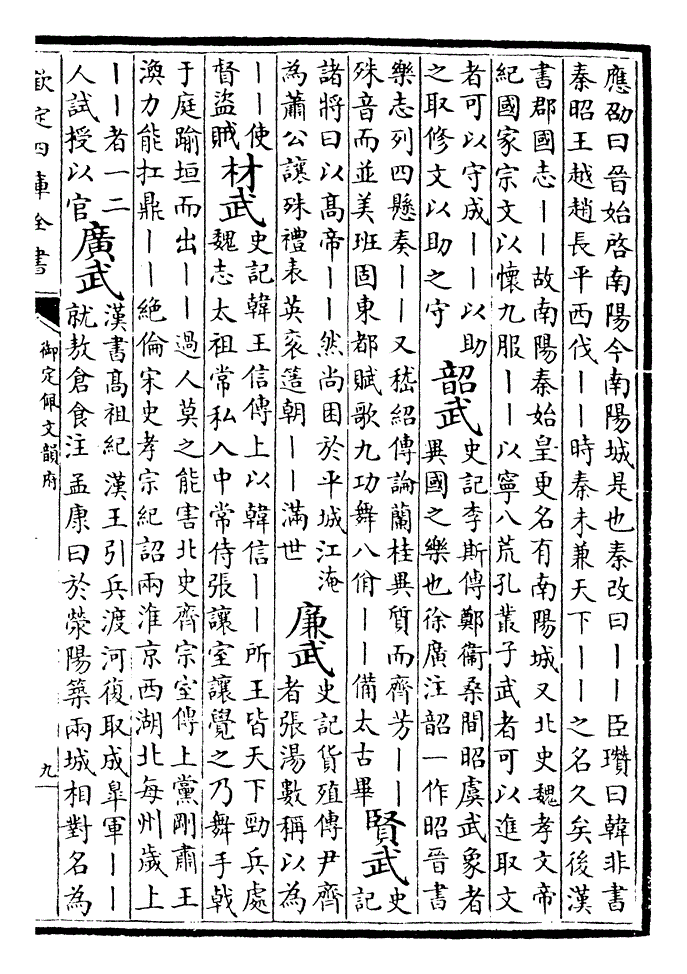 應劭曰晉始啓南陽今南陽城是也秦改曰丨丨臣瓚曰韓非書
秦昭王越趙長平西伐丨丨時秦未兼天下丨丨之名久矣後漢
書郡國志丨丨故南陽秦始皇更名有南陽城又北史魏孝文帝
紀國家宗文以懷九服丨丨以寧八荒孔叢子武者可以進取文
者可以守成丨丨以助
之取修文以助之守
韶武
史記李斯傳鄭衞桑間昭虞武象者
異國之樂也徐廣注韶一作昭晉書
樂志列四懸奏丨丨又嵇紹傳論蘭桂異質而齊芳丨丨
殊音而並美班固東都賦歌九功舞八佾丨丨備太古畢
賢武
史
記
諸將曰以高帝丨丨然尚困於平城江淹
為蕭公讓殊禮表英衮簉朝丨丨滿世
廉武
史記貨殖傳尹齊
者張湯數稱以為
丨丨使
督盜賊
材武
史記韓王信傳上以韓信丨丨所王皆天下勁兵處
魏志太祖常私入中常侍張讓室讓覺之乃舞手戟
于庭踰垣而出丨丨過人莫之能害北史齊宗室傳上黨剛肅王
渙力能扛鼎丨丨絶倫宋史孝宗紀詔兩淮京西湖北每州歲上
丨丨者一二
人試授以官
廣武
漢書高祖紀漢王引兵渡河復取成臯軍丨丨
就敖倉食注孟康曰於滎陽築兩城相對名為
欽定四庫全書
御定佩文韻府
九